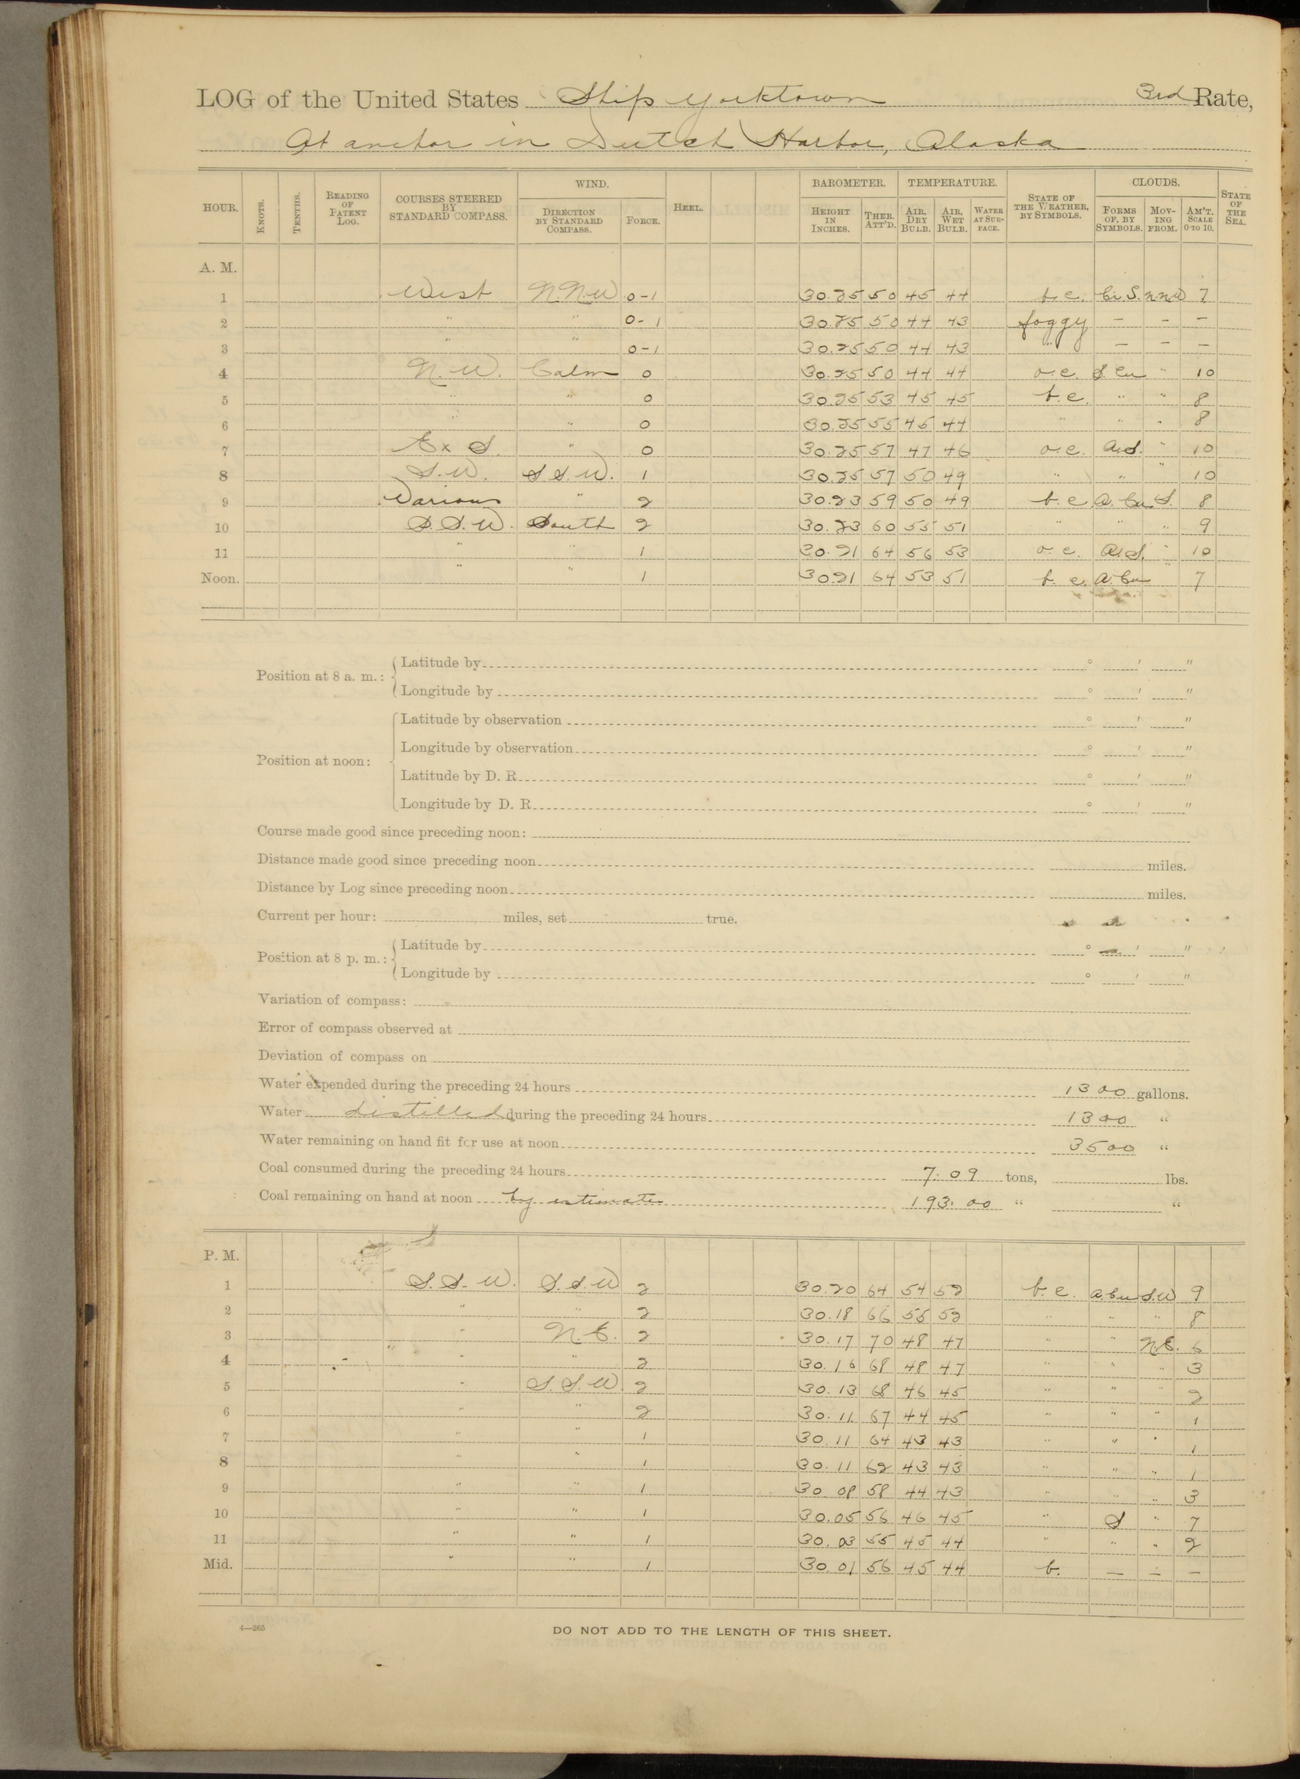 LOG of the United States Ship Yorktown 3rd Rate,
At anchor in Dutch Harbor, Alaska
HOUR. KNOTS. TENTHS. READING OF PATENT LOG. COURSES STEERED BY STANDARD COMPASS. WIND. DIRECTION BY STANDARD COMPASS. FORCE. HEEL. BAROMETER. HEIGHT IN INCHES. THER. ATT'D. TEMPERATURE. AIR, DRY BULB. AIR, WET BULB. WATER AT SURFACE. STATE OF THE WEATHER, BY SYMBOLS. CLOUDS. FORMS OF, BY SYMBOLS. MOVING FROM. AM'T. SCALE 0 TO 10. STATE OF THE SEA.
A. M.
1 West N.N.W 0-1 30.25 50 45 44 b.c. Cu.S. NNW 7
2 " " 0-1 30.25 50 44 43 foggy — — —
3 " " 0-1 30.25 50 44 43 " — — —
4 N.W. Calm 0 30.25 50 44 44 o.c. S Cu " 10
5 " " 0 30.25 53 45 45 b.c. " " 8
6 " 0 30.25 55 45 44 " " " 8
7 ExS. " 0 30.25 57 47 46 o.c. " 10
8 S.W. S.S.W. 1 30.25 57 50 49 " " 10
9 Various " 2 30.23 59 50 49 b.c. A.Cu S. 8
10 S.S.W. South 2 30.23 60 55 51 " " " 9
11 " " 1 30.21 64 56 53 o.c. " 10
Noon. " " 1 30.21 64 53 51 b.c. A.Cu " 7
Position at 8 a. m.: Latitude by ° ′ ″
Longitude by ° ′ ″
Position at noon: Latitude by observation ° ′ ″
Longitude by observation ° ′ ″
Latitude by D. R. ° ′ ″
Longitude by D. R. ° ′ ″
Course made good since preceding noon:
Distance made good since preceding noon miles.
Distance by Log since preceding noon miles.
Current per hour: miles, set true.
Position at 8 p. m.: Latitude by ° ′ ″
Longitude by ° ′ ″
Variation of compass:
Error of compass observed at
Deviation of compass on
Water expended during the preceding 24 hours 1300 gallons.
Water distilled during the preceding 24 hours 1300 "
Water remaining on hand fit for use at noon 3500 "
Coal consumed during the preceding 24 hours 7.09 tons, lbs.
Coal remaining on hand at noon by estimate 193.00 " "
P. M.
1 S.S.W. S.S.W 2 30.20 64 54 52 b.c. A.Cu S.W 9
2 " " 2 30.18 66 55 52 " " " 8
3 " N.E. 2 30.17 70 48 47 " " N.E. 6
4 " " 2 30.16 68 48 47 " " " 3
5 " S.S.W. 2 30.13 68 46 45 " " " 2
6 " " 2 30.11 67 44 45 " " " 1
7 " " 1 30.11 64 43 43 " " " 1
8 " " 1 30.11 62 43 43 " " " 1
9 " " 1 30 08 58 44 43 " " " 3
10 " " 1 30.05 56 46 45 " S " 7
11 " " 1 30.03 55 45 44 " " " 2
Mid. " " 1 30 01 56 45 44 b. — — —
4—265
DO NOT ADD TO THE LENGTH OF THIS SHEET.